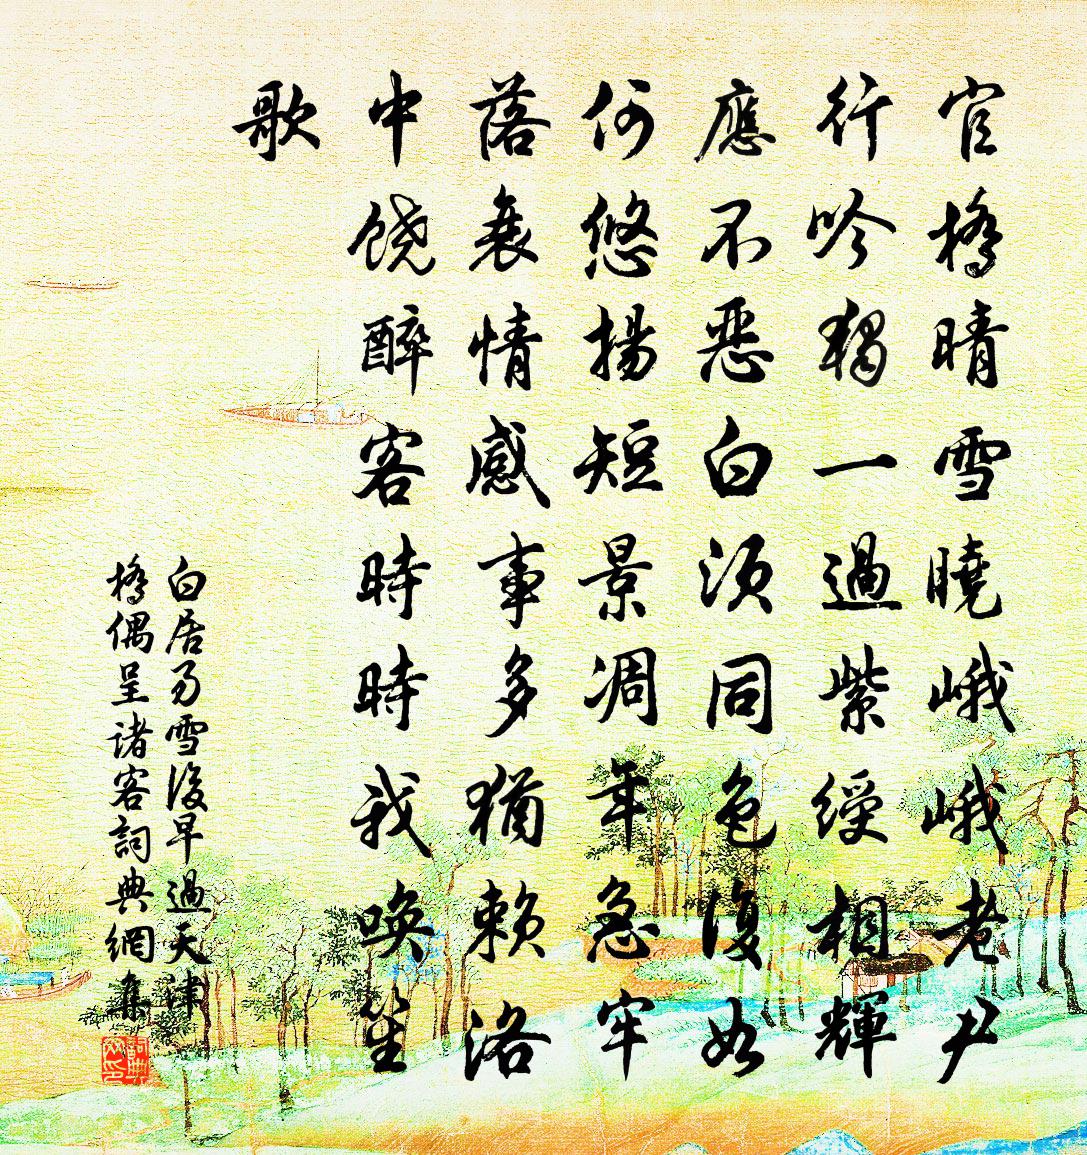 官橋晴雪曉峨峨老尹
行吟獨一過紫綬相輝
應不恶白須同色復如
何悠揚短景凋年急牢
落衰情感事多猶賴洛
中饶醉客時時我喚笙
歌
白居易雪後早過天津
橋偶呈诸客詞典網集